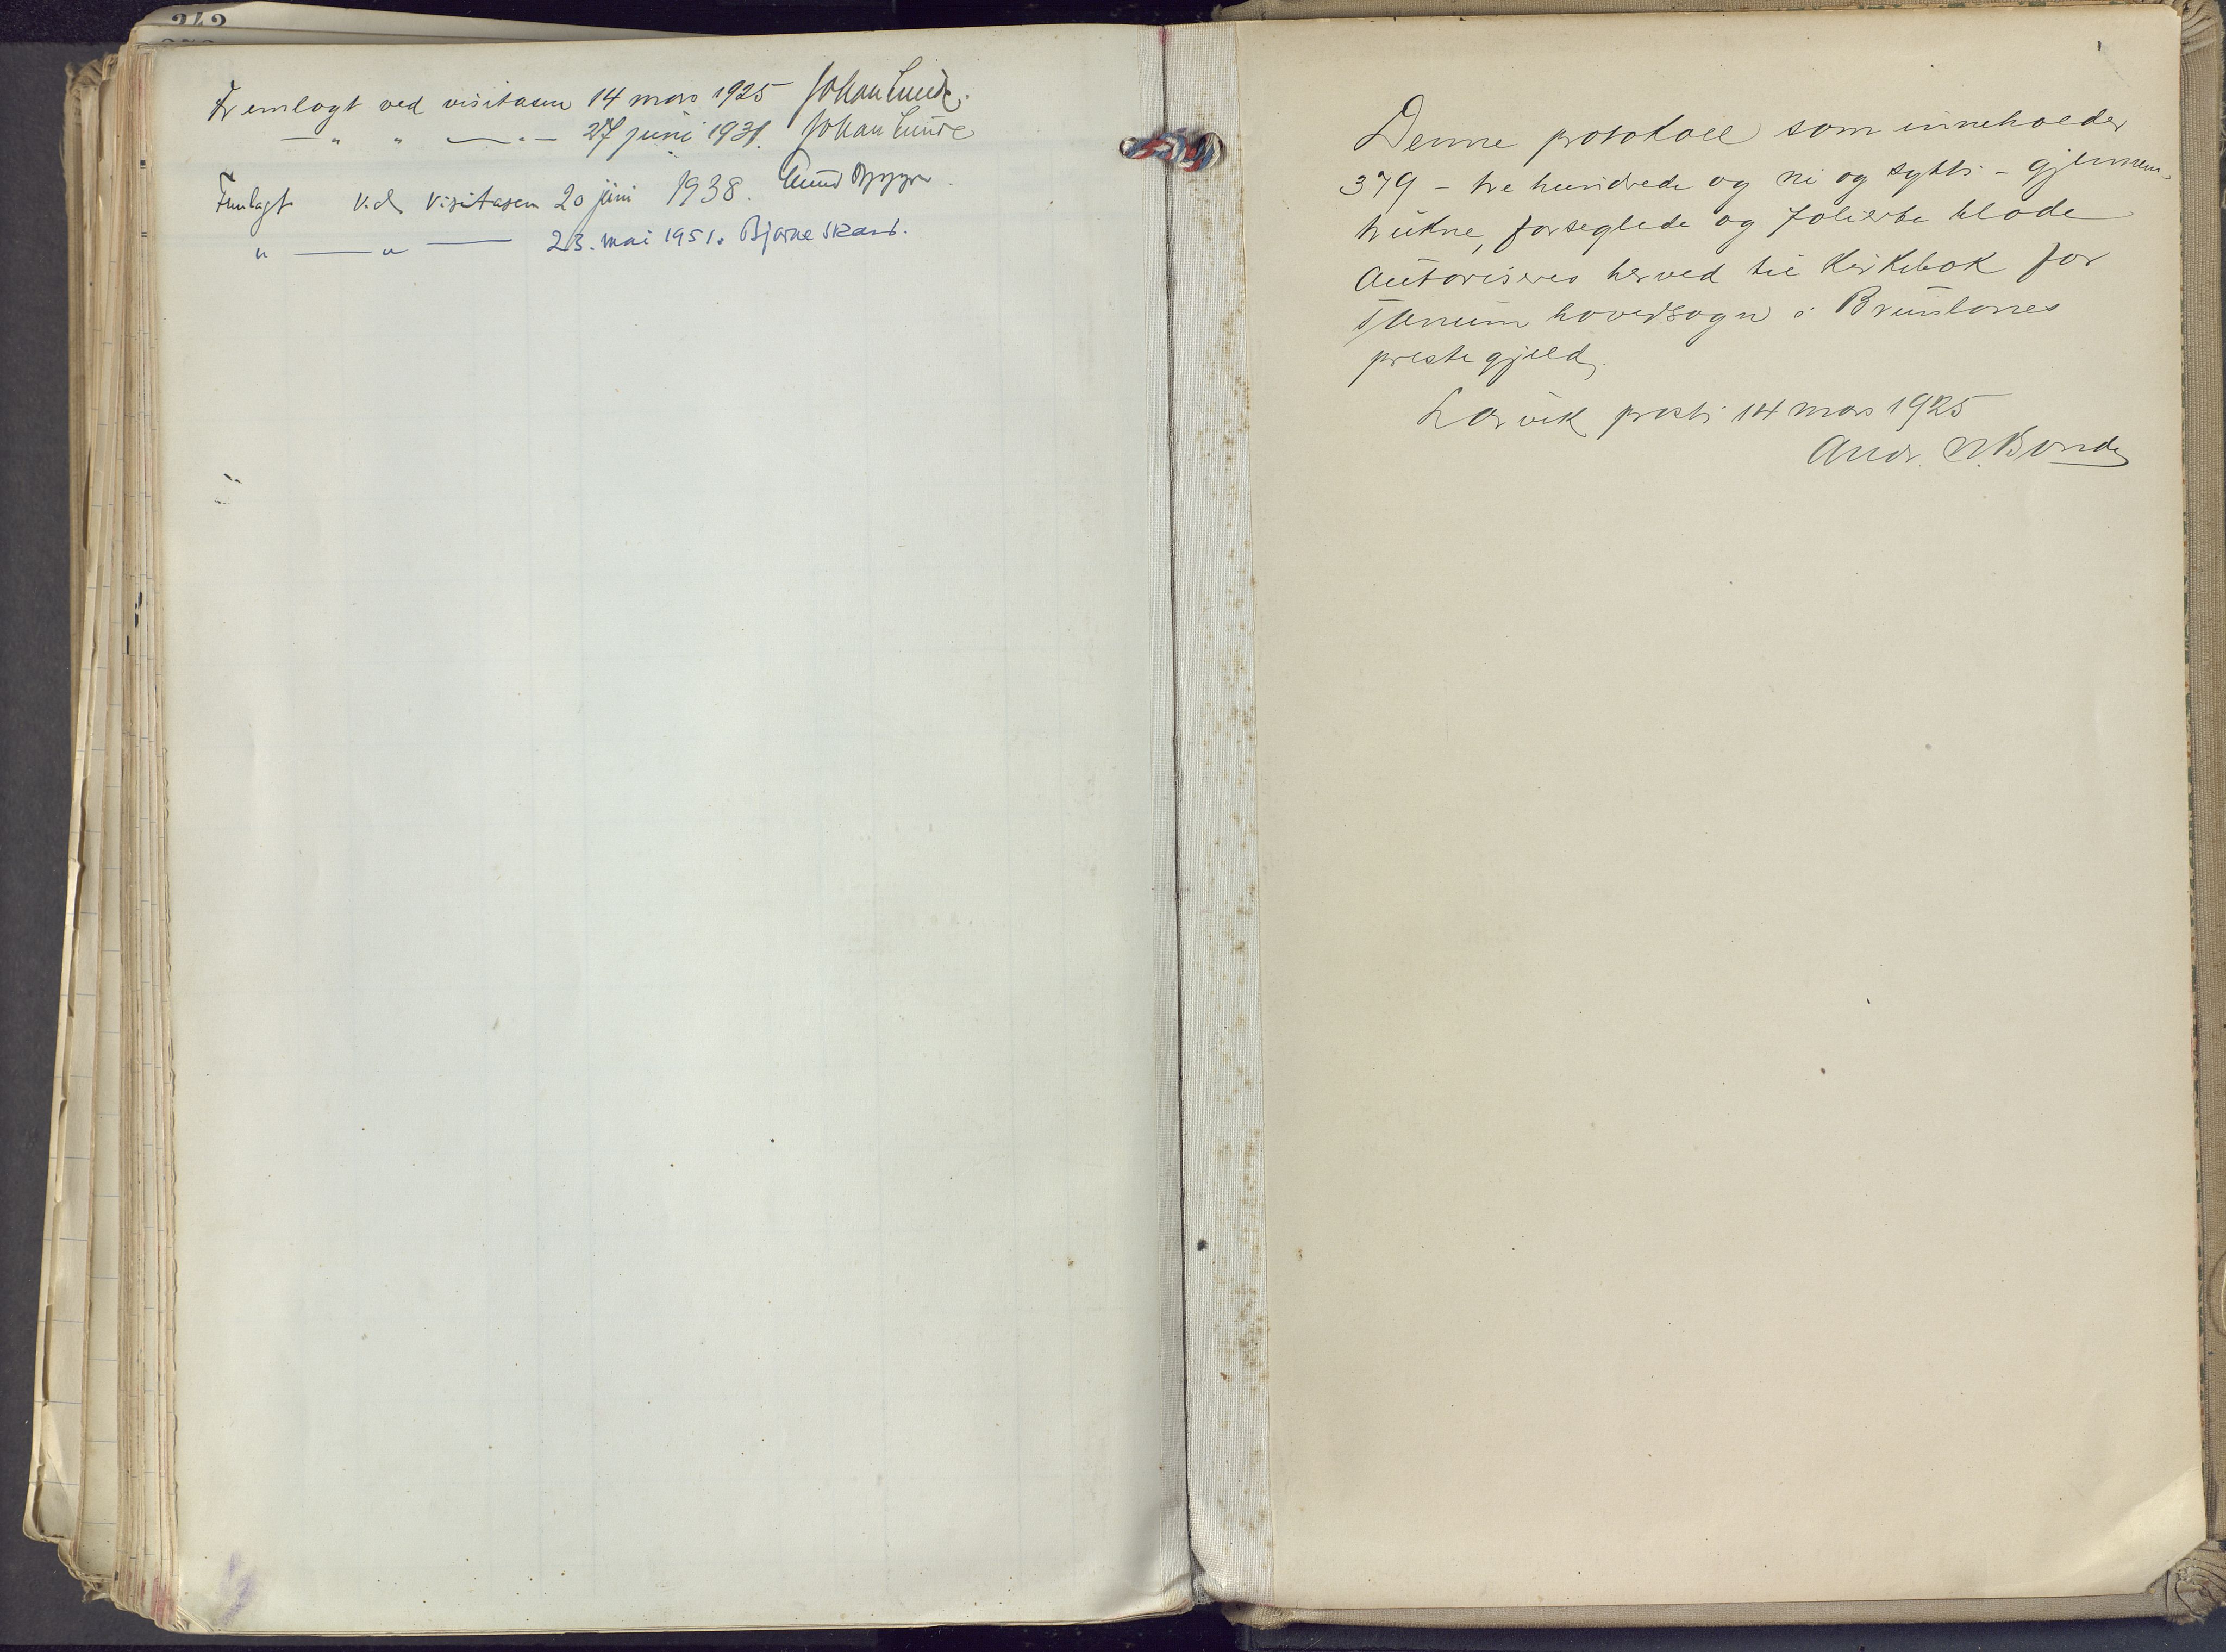 342
Fremlagt ved visitasen 14 mars 1925 Johan Lunde.
— " " — " — 27 juni 1931. Johan Lunde
Fremlagt ved visitasen 20 juni 1938.
" — " — 23. mai 1951. Bjarne Skard.
Denne protokoll som inneholder
379 - tre hundrede og ni og sytti - gjennem-
trukne, forseglede og folierte blade
autoriseres herved til kirkebok for
Tanum hovedsogn i Brunlanes
prestegjeld.
Larvik prosti 14 mars 1925
Andr. N. Bonde